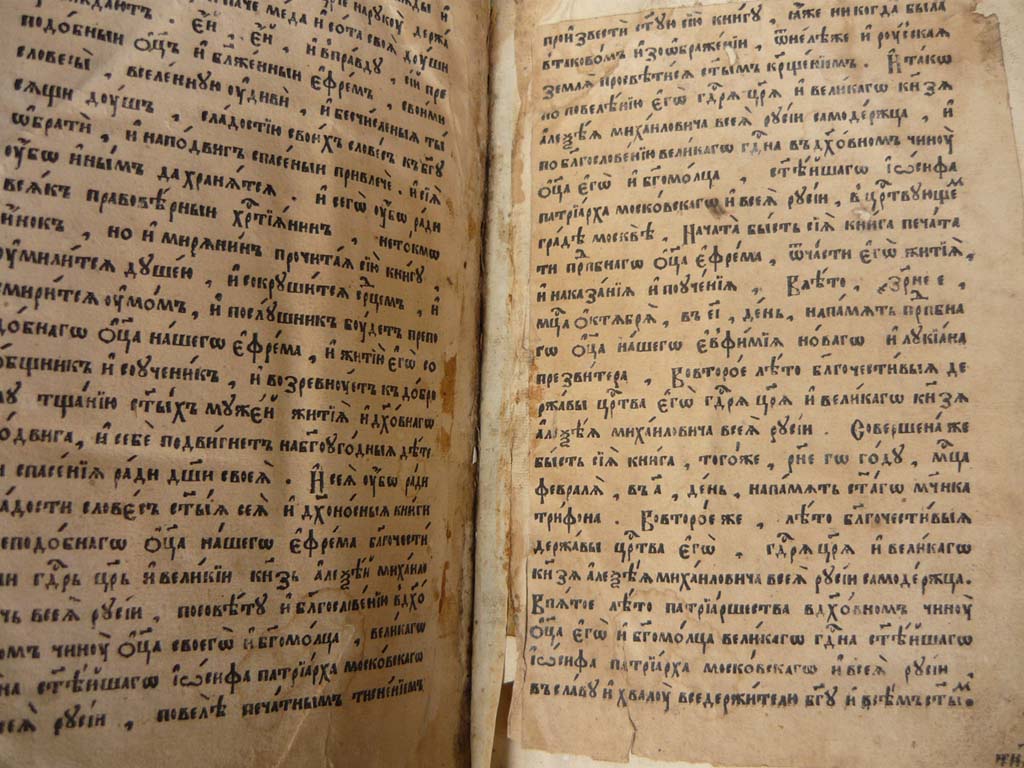 паче меда и сота своя доуши
ждают. Ей, ей, и вправду, сій пре
подобный ѻц҃ъ и бл҃женный єфрем, своими
словесы, вселенную оудиви, и бесчисленыя ты
сящи доушъ, сладостію своихъ словесъ къ бг҃у
ѡбрати, и наподвиг спасеный привлече. и сія
оубѡ инымъ да хранятся. и сегѡ оубѡ ради
всякъ правовѣрныи хрⷭ҇тіянинъ, нетокмѡ
инокъ, но и мирянинъ прочитая сію книгу,
оумилится душею, и сокрушится срⷣцемъ, и
смирится оумомъ, и послушникъ боудетъ препо
добнагѡ ѻц҃а нашегѡ єфрема, и житій єгѡ со
общникъ и соученикъ, и возревноуетъ къ добро
му тщанію ст҃ыхъ мужей житія и дх҃овнагѡ
подвига, и себе подвигнетъ на бг҃оугодныя дѣте
и спасенія ради дш҃и своея. И сея оубѡ ради
сладости словесъ ст҃ыя сея и дх҃оносныя книги
преподобнагѡ ѻц҃а нашегѡ єфрема бл҃гочести
ый гдⷭ҇рь цр҃ь и великіи кнѧзь алеѯѣй михаило
вичь всея русіи, посовѣту и бл҃гословеніи вдх҃о
вномъ чиноу ѻц҃а своегѡ и бг҃омолца, великагѡ
гдⷭ҇на ст҃ѣйшагѡ іѡсифа патріарха московскагѡ
и всея русіи, повелѣ печатнымъ тисненіемъ
произвести ст҃ую сію книгу, ꙗже никогда была
втаковомъ изѡбраженіи, ѿнелѣже и роусская
земля просвѣтися ст҃ымъ крⷭ҇щеніемъ. И такѡ
по повелѣнію єгѡ гдⷭ҇ря цр҃я и великагѡ кнѧзя
алеѯѣя михаиловича всея русіи самодержца, и
по блⷭ҇гословенію великагѡ гдⷭ҇на въ дх҃овномъ чиноу
ѻц҃а єгѡ и бг҃омолца, ст҃ѣйшагѡ іѡсифа
патріарха московскагѡ и всея русіи, въ црⷭ҇твующемъ
градѣ москвѣ, Начата бысть сія книга печата
ти прⷣпбнагѡ ѻц҃а єфрема, ѿчасти єгѡ житія,
и наказанія и поученія, Влѣто, ҂зрне,
мцⷭ҇а октября, въ еі, день, напамять прⷣпбна
гѡ ѻц҃а нашегѡ єѵфимія новагѡ и лукіана
презвитера, Ввторое лѣто блⷭ҇гочестивыя де
ржавы црⷭ҇тва єгѡ гдⷭ҇ря цр҃я и великагѡ кнѧзя
алеѯѣя михаиловича всея русіи. Совершена же
бысть сія книга, тогоже, рне гѡ году, мцⷭ҇а
февраля, въ а, день, напамять ст҃агѡ мⷱ҇нка
трифона. Ввторое же, лѣто блⷭ҇гочестивыя
державы црⷭ҇тва єгѡ, гдⷭ҇ря цр҃я и великагѡ
кнѧзя алеѯѣя михаиловича всея русіи самодержца.
Впятое лѣто патріаршества вдх҃овномъ чиноу
ѻц҃а єгѡ и бг҃омолца великагѡ гдⷭ҇на ст҃ѣйшагѡ
іѡсифа патріарха московскагѡ и всея русіи
въ славу и хвалоу вседержителю бг҃у и всѣмъ ст҃ымъ.